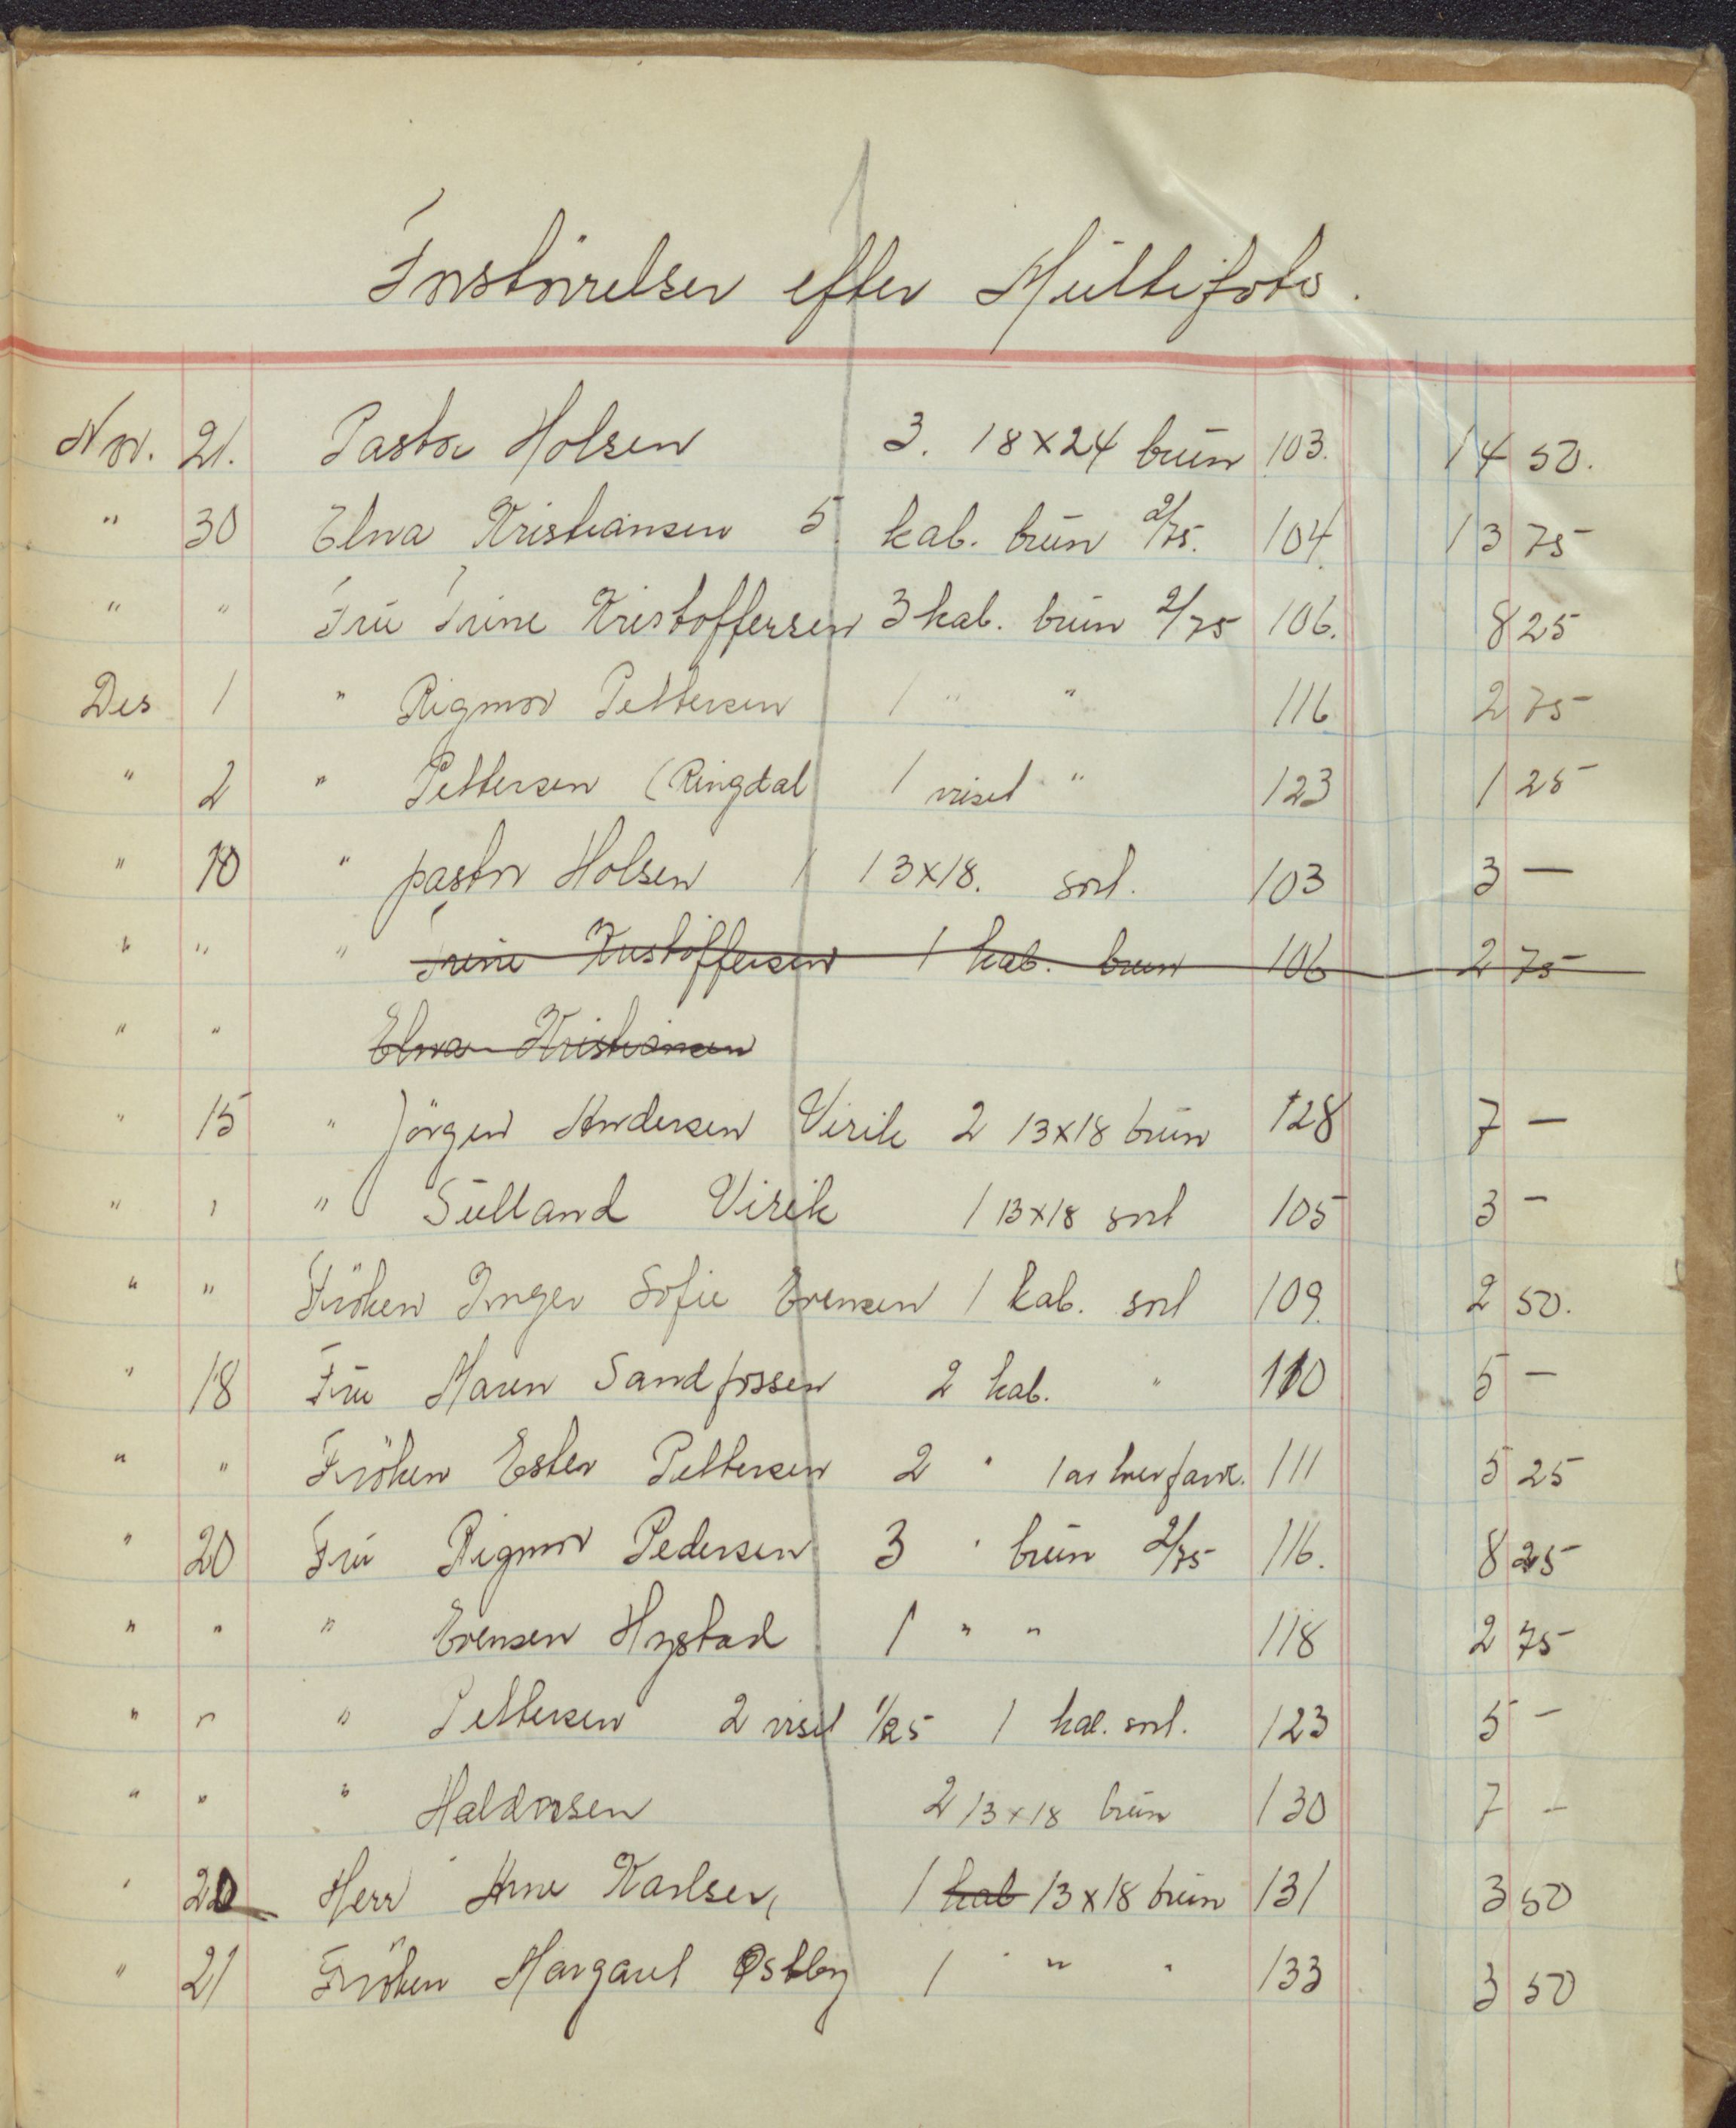 Forstörrelser efter Multifoto.
Nov. 21. Pastor Holsen 3. 18x24 brun 103. 14 50.
" 30 Elna Kristiansen 5 kab. brun 2/75. 104. 13 75
" " Fru Trine Kristoffersen 3 kab. brun 2/75 106. 8 25
Des 1 " Rigmor Pettersen 1 " " 116 2 75
" 2 " Pettersen (Ringdal 1 visit " 123 1 25
" 10 " pastor Holsen 1 13x18. sort. 103 3 —
" " " Trine Kristoffersen 1 kab. brun 106 2 75
" " Elna Kristiansen
" 15 " Jörgen Andersen Virik 2 13x18 brun 128 7 —
" " " Sulland Virik 1 13x18 sort 105 3 —
" " Fröken Inger Sofie Evensen 1 kab. sort 109. 2 50.
" 18 Fru Maren Sandfossen 2 kab. " 110 5 —
" " Fröken Ester Pettersen 2 " 1 av hver farve. 111 5 25
" 20 Fru Rigmor Pedersen 3 " brun 2/75 116. 8 25
" " " Evensen Hystad 1 " " 118 2 75
" " " Pettersen 2 visit 1/25 1 kab. sort. 123 5 —
" " " Haldorsen 2 13x18 brun 130 7 —
" 20 Herr Arne Karlsen, 1 kab 13x18 brun 131 3 50
" 21 Fröken Margaret Østby 1 " " 133 3 50